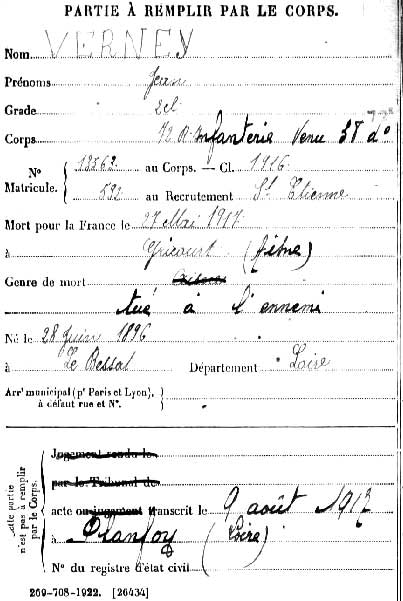 PARTIE À REMPLIR PAR LE CORPS.
Nom VERNEY
Prénoms Jean
Grade 2cl
Corps 72 R. Infanterie Venu 38 do
No Matricule. { 13562 au Corps. — Cl. 1916
532 au Recrutement St Etienne
Mort pour la France le 27 Mai 1917
à Gricourt (Aisne)
Genre de mort
tué à l'ennemi
Né le 28 Juin 1896
à Le Bessat Département Loire
Arrt municipal (pr Paris et Lyon),
à défaut rue et No.
Cette partie n'est pas à remplir par le Corps.
Jugement rendu le
par le Tribunal de
acte ou jugement transcrit le 9 août 1917
à Planfoy (Loire)
No du registre d'état civil
269-708-1922. [26434]